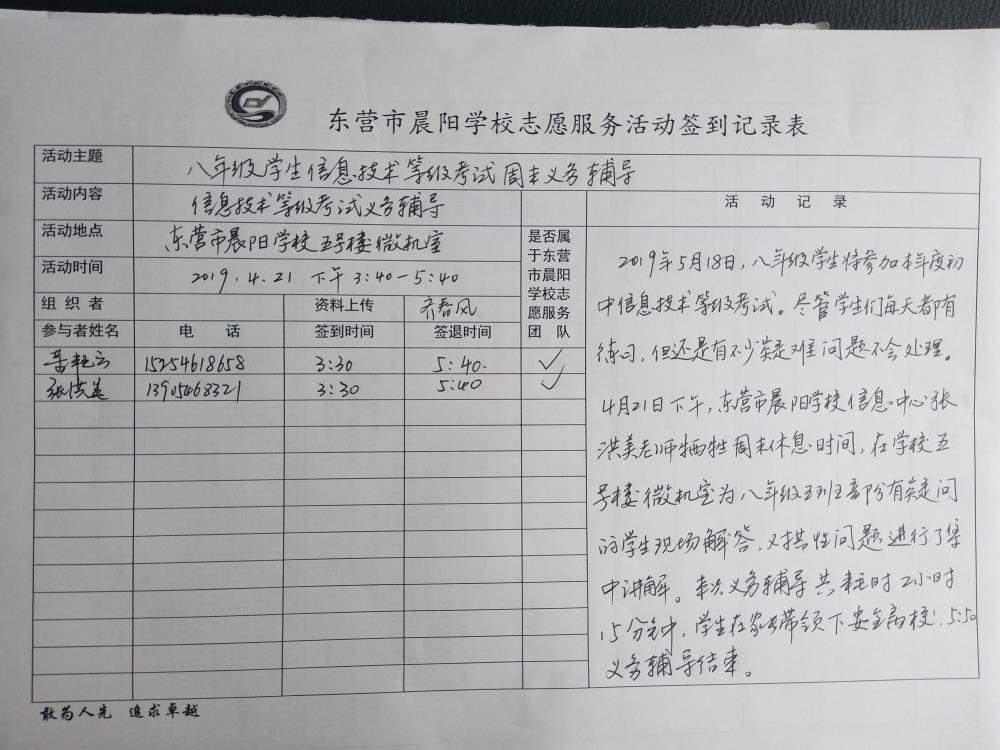 东营市晨阳学校志愿服务活动签到记录表
活动主题 八年级学生信息技术等级考试周末义务辅导
活动内容 信息技术等级考试义务辅导
活动地点 东营市晨阳学校五号楼微机室
活动时间 2019.4.21 下午3:40-5:40
组织者 资料上传 齐春风
是否属
于东营
市晨阳
学校志
愿服务
团 队
参与者姓名 电 话 签到时间 签退时间
15254618658 3:30 5:40. ✓
张洪美 13905468321 3:30 5:40 ✓
活 动 记 录
2019年5月18日,八年级学生将参加本年度初
中信息技术等级考试。尽管学生们每天都有
练习,但还是有不少疑难问题不会处理。
4月21日下午,东营市晨阳学校信息中心张
洪美老师牺牲周末休息时间,在学校五
号楼微机室为八年级五班部分有疑问
的学生现场解答,对共性问题进行了集
中讲解。本次义务辅导共耗时2小时
15分钟,学生在家长带领下安全离校,5:50
义务辅导结束。
敢为人先 追求卓越